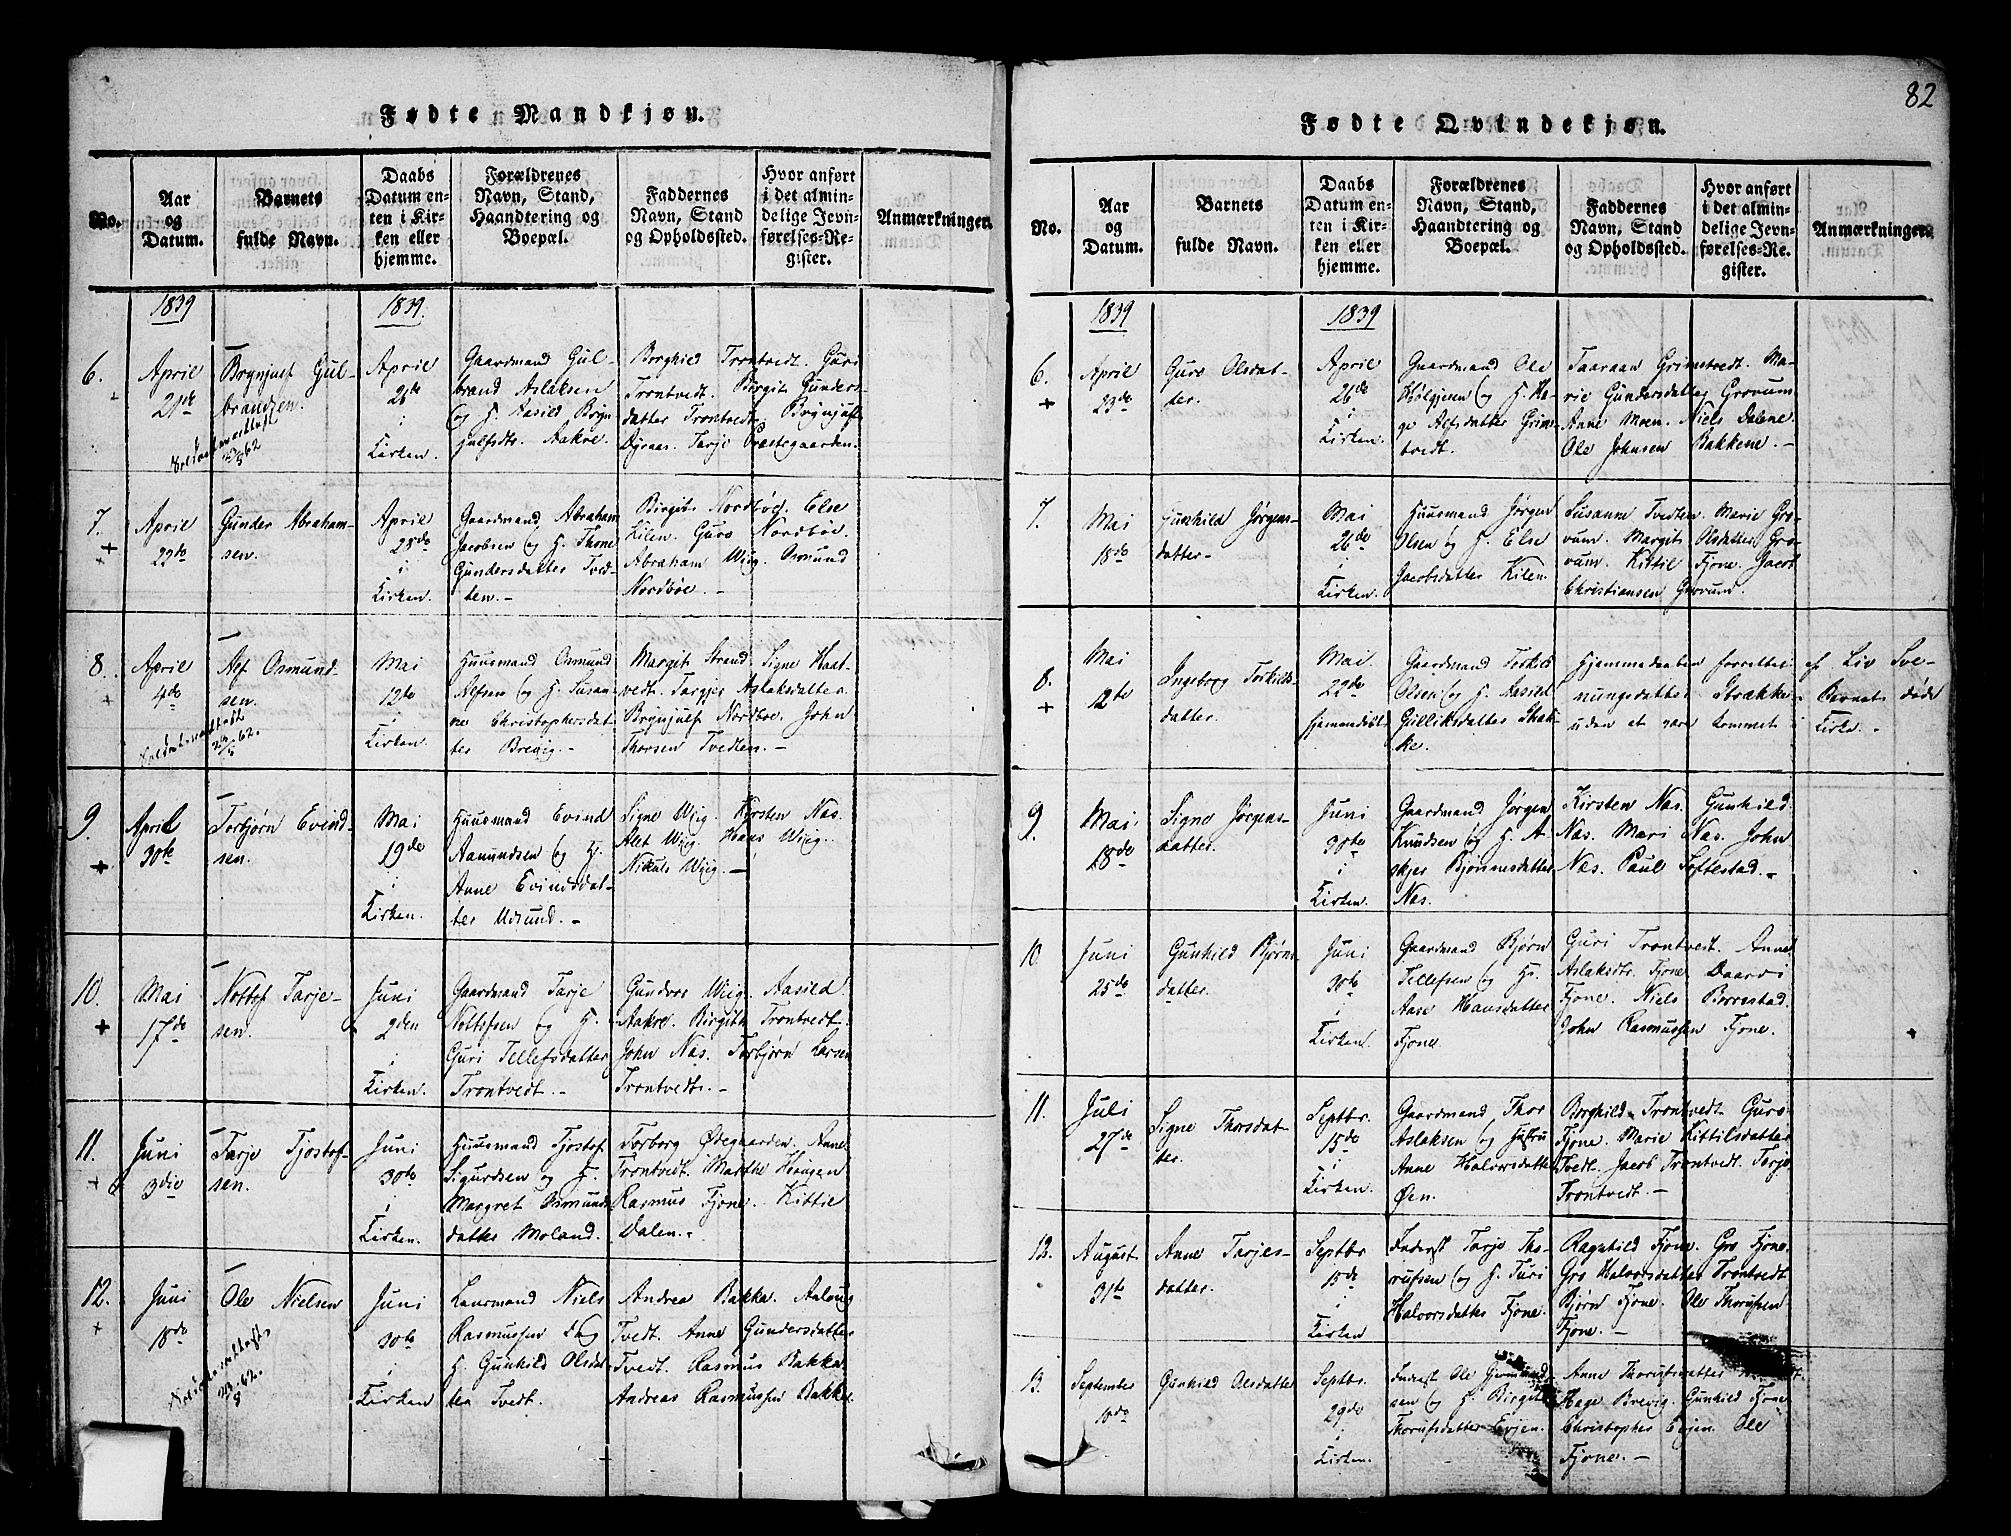 82
Fødte Mandkjøn.
No.
Aar
og
Datum.
Barnets
fulde Navn.
Daabs
Datum en-
ten i Kir-
ken eller
hjemme.
Forældrenes
Navn, Stand,
Haandtering og
Boepæl.
Faddernes
Navn, Stand
og Opholdssted.
Hvor anført
i det almin-
delige Jevn-
førelses-Re-
gister.
Anmærkninger.
1839
1839.
6.
+
April
21de
Brynjulf Gul-
brandsen.
April
26de
i
Kirken.
Gaardmand Gul-
brand Aslaksen
og H. Aasild Bryn-
julfsdtr. Aakre.
Borghild Trontvedt. Guri
Trontvedt. Birgit Gunders-
datter Trontvedt. Brynjulf
Dyraas. Tarje Præstegaarden.
7.
+
April
23de
Gunder Abraham-
sen.
April
28de
i
Kirken.
Gaardmand Abraham
Jacobsen og H. Thone
Gundersdatter Tved-
ten.-
Birgit Nordbøe. Else
Kilen. Guro Nordbøe.
Abraham Wiig. Osmund
Nordbøe.-
8.
+
April
4de
Alf Osmund-
sen.
Mai
12te
i
Kirken.
Huusmand Osmund
Alfsen og H. Susan-
ne Christophersdat-
ter Brevig.-
Margit Strand. Signe Haat-
vedt. Targje Aslaksdatter.
Brynjulf Nordbøe. John
Thorsen Tvedten.-
9.
+
April
30te
Torbjørn Evind-
sen.
Mai
19de
i
Kirken.
Huusmand Evind
Aamundsen og H.
Anne Evindsdat-
ter Udsund.-
Signe Wiig. Kirsten Nas.
Alet Wiig. Hans Wiig.
Nikuls Wiig.-
10.
+
Mai
17de
Nottof Tarje-
sen.
Juni
2den
i
Kirken.
Gaardmand Tarje
Nottofsen og H.
Guri Tellefsdatter
Trontvedt.-
Gundvor Wiig. Aasild
Aakre. Birgith Trontvedt.
John Nas. Torbjørn Larsen
Trontvedt.-
11.
+
Juni
3die
Tarje Tjostof-
sen.
Juni
30te
i
Kirken.
Huusmand Tjostof
Sigurdsen og H.
Margret Osmunds-
datter Moland.
Torborg Ødegaarden. Anne
Trontvedt. Marthe Haugen
Rasmus Fjone. Kittil
Dalen.-
12.
+
Juni
18de
Ole Nielsen
Juni
30te
i
Kirken
Laurmand Niels
Rasmussen og
H. Gunhild Olsdat-
ter Tvedt.
Andrea Bakka. Aaloug
Tvedt. Anne Gundersdatter
Tvedt. Rasmus Bakka.
Andreas Rasmussen Bakka.
Fødte Qvindekjøn.
No.
Aar
og
Datum.
Barnets
fulde Navn.
Daabs
Datum en-
ten i Kir-
ken eller
hjemme.
Forældrenes
Navn, Stand,
Haandtering og
Boepæl.
Faddernes
Navn, Stand
og Opholdssted.
Hvor anført
i det almin-
delige Jevn-
førelses-Re-
gister.
Anmærkninger.
1839
1839
6.
+
April
23de
Guro Olsdat-
ter.
April
26de
i
Kirken.
Gaardmand Ole
Hølgjesen og H. He-
ge Alfsdatter Grims-
tvedt.
Taaraan Grimstvedt. Ma-
rie Gundersdatter Grovum.
Anne Moen. Niels Dalene.
Ole Johnsen Bakkene.-
7.
Mai
18de
Gunhild Jørgens-
datter.
Mai
26de
i
Kirken.
Huusmand Jørgen
Olsen og H. Else
Jacobsdatter Kilen.
Susanne Tvedten. Marie Gro-
vum. Margit Olsdatter Gro-
vum. Kittil Fjone. Jacob
Christiansen Grovum.
8.
+
Mai
12te
Ingeborg Torkilds-
datter.
Mai
22de
hjemmedøbt
Gaardmand Torkild
Olsen og H. Aasild
Gulliksdatter Stræk-
ke.
Hjemmedaaben forrettet af Liv Sve-
nungsdatter Strække. Barnet døde
uden at være kommet i Kirke.-
9.
Mai
18de
Signe Jørgens-
datter.
Juni
30te
i
Kirken.
Gaardmand Jørgen
Knudsen og H. A-
skjer Bjørnsdatter
Nas.
Kirsten Nas. Gunhild
Nas. Mari Nas. John
Nas. Paul Søftestad.-
10
Juni
25de
Gunhild Bjørns-
datter.
Juni
30te
i
Kirken.
Gaardmand Bjørn
Tellefsen og H.
Aase Hansdatter
Fjone.
Guri Trontvedt. Anne
Aslaksdtr. Fjone. Daarvi
Fjone. Niels Børrestad.
John Rasmussen Fjone.
+
11.
Juli
27de
Signe Thorsdat-
ter.
Septbr.
15de
i
Kirken.
Gaardmand Thor
Aslaksen og Hustru
Anne Halvorsdatter
Øen.
Borghild Trontvedt. Guro
Fjone. Marie Kittilsdatter
Tvedt. Jacob Trontvedt. Tarje
Trontvedt.-
12.
August
31te
Anne Tarjes-
datter.
Septbr
15de
i
Kirken
Inderst Tarje Tho-
rufsen og H. Turi
Halvorsdatter Fjone.
Ragnhild Fjone. Gro Fjone.
Gro Halvorsdatter Trontvedt
Bjørn Fjone. Ole Thorufsen
Fjone.-
13.
September
10de
Gunhild Olsdatter
Septbr.
29de
i
Kirken.
Inderst Ole Germund-
sen og H. Birgit
Thorufsdatter Evjen.
Anne Thorufsdatter
Hage Brevig. Gunhild Fjone
Christopher Evjen. Ole
Fjone.-